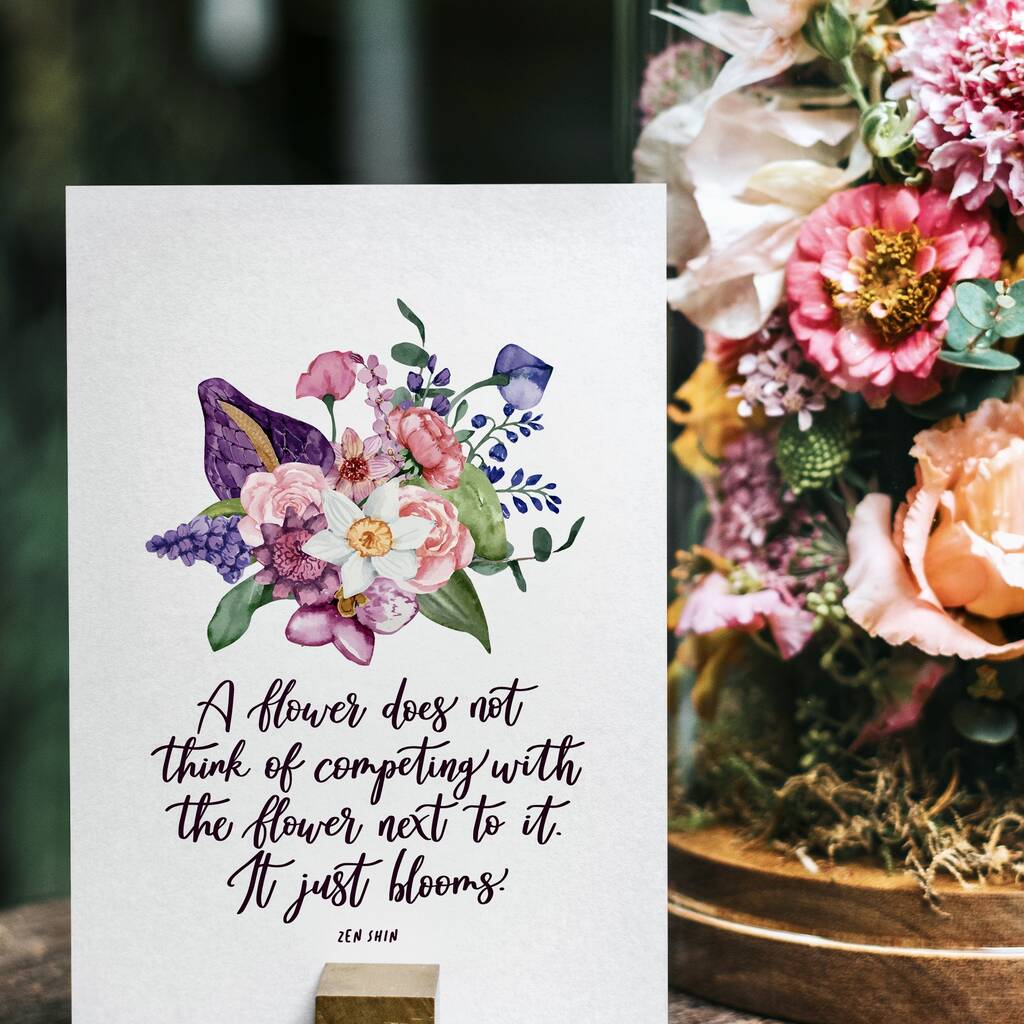 A flower does not
think of competing with
the flower next to it.
It just blooms.
ZEN SHIN